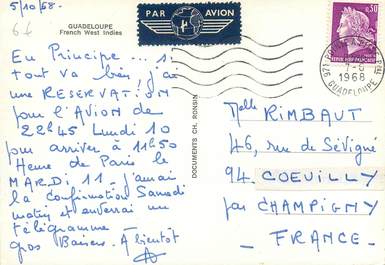 5/10/68-
GUADELOUPE
French West Indies
PAR AVION
En Principe... si
tout va bien, j'ai
une RESERVATION
pour l'AVION de
22h45 Lundi 10
pour arriver à 11h50
Heure de Paris le
MARDI 11. j'aurai
la confirmation Samedi
matin et enverrai un
télégramme
gros Baisers. A bientôt
DOCUMENTS CH. RONSIN
0,50
REPUBLIQUE FRANÇAISE
1968
GUADELOUPE
Melle RIMBAUT
46, rue de Sévigné
94. COEUILLY
par CHAMPIGNY
- FRANCE -